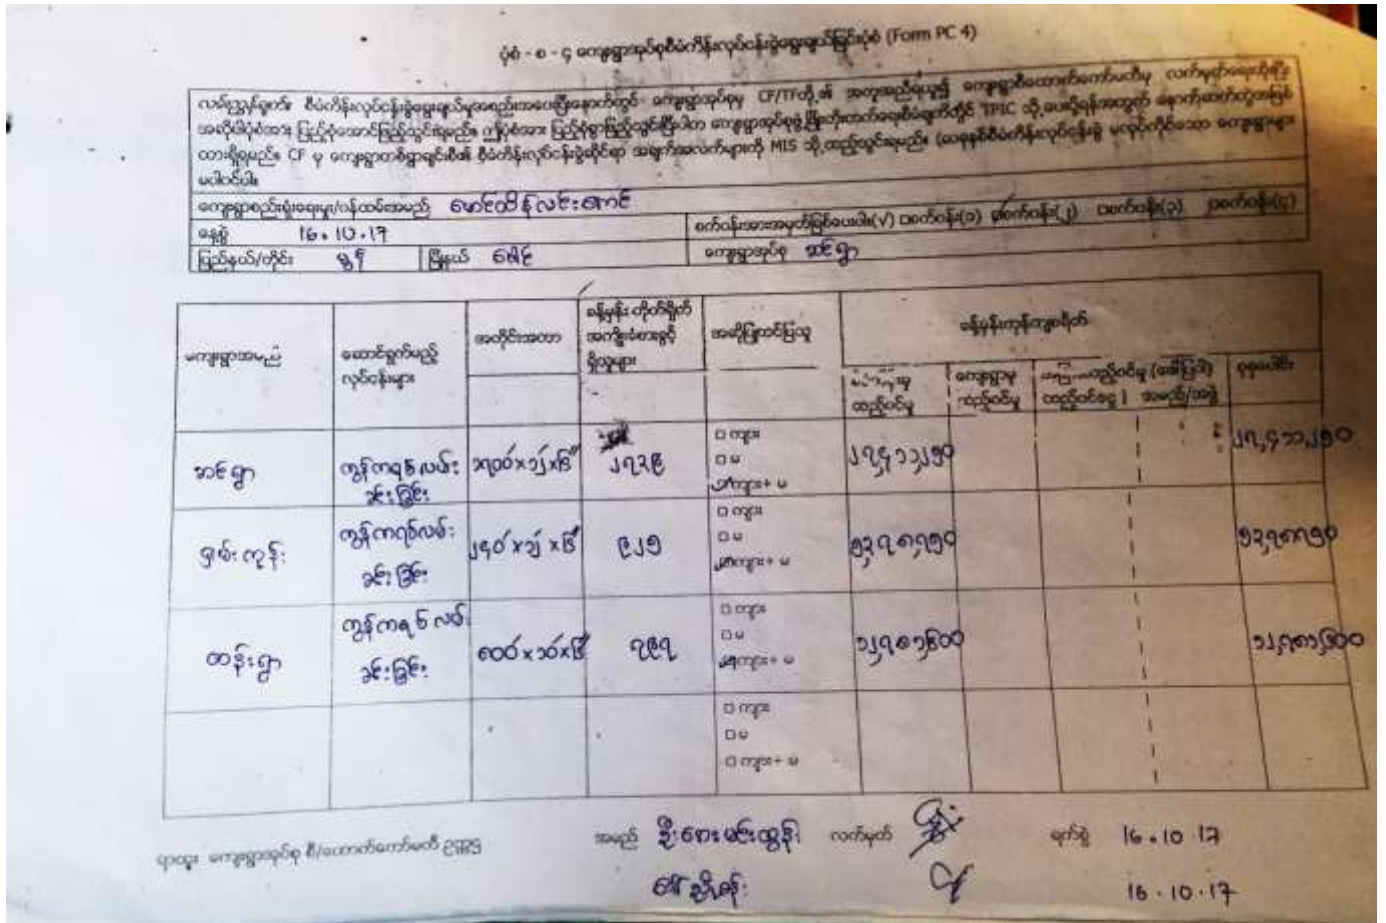 ပုံစံ - စ - ၄ ကျေးရွာအုပ်စုစီမံကိန်းလုပ်ငန်းခွဲရွေးချယ်ခြင်းပုံစံ (Form PC 4)
လမ်းညွှန်ချက်။ စီမံကိန်းလုပ်ငန်းခွဲရွေးချယ်မှုအစည်းအဝေးပြီးနောက်တွင် ကျေးရွာအုပ်စုမှ CF/TFတို့၏ အကူအညီရယူ၍ ကျေးရွာစီထောက်ကော်မတီမှ လက်မှတ်ရေးထိုးပြီး
အဆိုပါပုံစံအား ပြည့်စုံအောင်ဖြည့်သွင်းရမည်။ ဤပုံစံအား ပြည့်စုံစွာဖြည့်သွင်းပြီးပါက ကျေးရွာအုပ်စုဖွံ့ဖြိုးတိုးတက်ရေးစီမံချက်တိုင် TPIC သို့ပေးပို့ရန်အတွက် နောက်ဆက်တွဲအဖြစ်
ထားရှိရမည်။ CF မှ ကျေးရွာတစ်ရွာချင်းစီ၏ စီမံကိန်းလုပ်ငန်းခွဲဆိုင်ရာ အချက်အလက်များကို MIS သို့ထည့်သွင်းရမည်။ (ယခုနှစ်စီမံကိန်းလုပ်ငန်းခွဲ မလုပ်ကိုင်သော ကျေးရွာများ
မပါဝင်ပါ။
ကျေးရွာစည်းရုံးရေးမှူး/ဝန်ထမ်းအမည် မောင်ထိန်လင်းအောင်
နေ့စွဲ 16.10.17 စက်ဝန်းအားအမှတ်ခြစ်ပေးပါ။(√) □စက်ဝန်း(၁) □စက်ဝန်း(၂) □စက်ဝန်း(၃) □စက်ဝန်း(၄)
ပြည်နယ်/တိုင်း မွန် မြို့နယ် ပေါင် ကျေးရွာအုပ်စု ဆင်ရွာ
ကျေးရွာအမည် ဆောင်ရွက်မည့် လုပ်ငန်းများ အတိုင်းအတာ ခန့်မှန်း တိုက်ရိုက် အကျိုးခံစားခွင့် ရှိသူများ အဆိုပြုတင်ပြသူ ခန့်မှန်းကုန်ကျစရိတ်
ထည့်ဝင်မှု ကျေးရွာမှ ထည့်ဝင်မှု ထည့်ဝင်မှု (ဖော်ပြပါ) အမည်/အဖွဲ့ စုစုပေါင်း
ဆင်ရွာ ကွန်ကရစ်လမ်း ခင်းခြင်း ၁၇၀၀'x၁၂'x၆" ၂၇၃၉ □ ကျား □ မ □ ကျား+ မ ၂၇၄၁၁၂၅၀ ၂၇,၄၁၁,၂၅၀
ရှမ်းကုန်း ကွန်ကရစ်လမ်း ခင်းခြင်း ၂၄၀'x၁၂'x၆" ၉၂၅ □ ကျား □ မ □ ကျား+ မ ၅၃၇၈၇၅၀ ၅၃၇၈၇၅၀
တန်းရွာ ကွန်ကရစ်လမ်း ခင်းခြင်း ၈၀၀'x၁၀'x၆" ၇၉၇ □ ကျား □ မ □ ကျား+ မ ၁၂၇၈၁၆၀၀ ၁၂,၇၈၁,၆၀၀
□ ကျား
□ မ
□ ကျား+ မ
ရာထူး ကျေးရွာအုပ်စု စီ/ထောက်ကော်မတီ ဥက္ကဋ္ဌ အမည် ဦးစေားမင်းထွန်း လက်မှတ် ရက်စွဲ 16.10.17
16.10.17